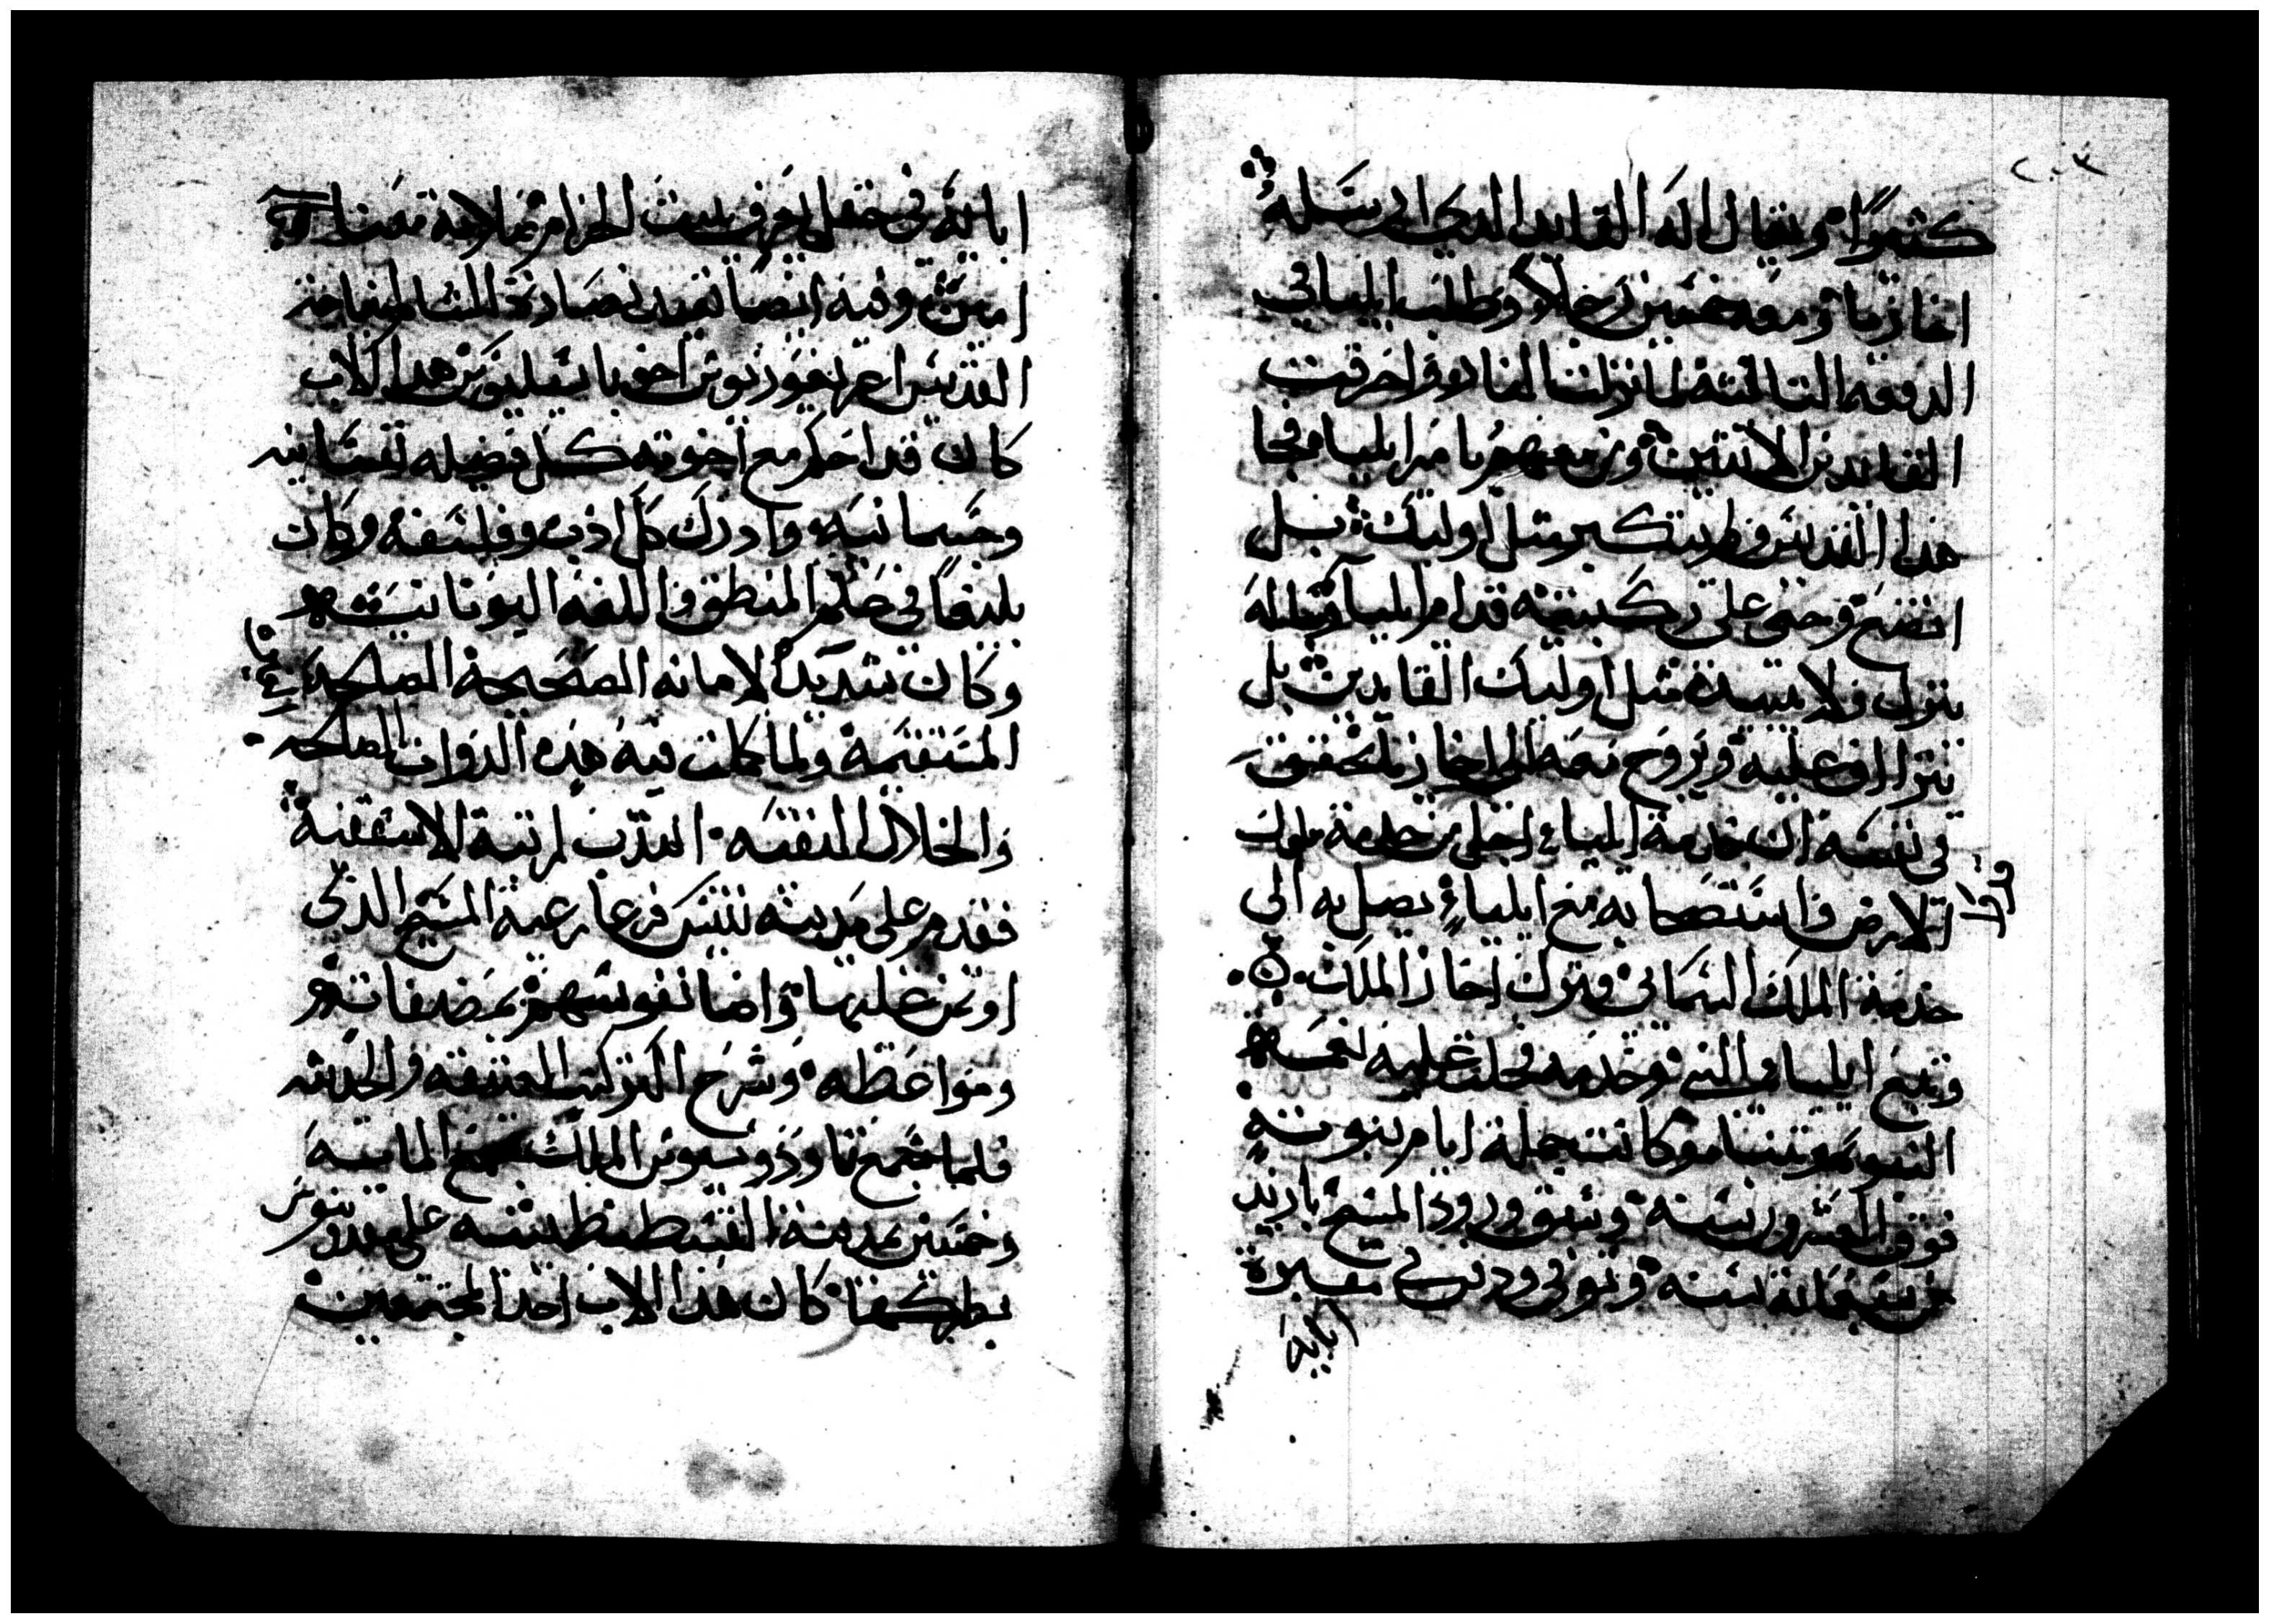 ٢٠٣
كثيرًا ويقال انه القايد الدي ارسله
اخاز يا ومعه خمسين رجلا وطلب ايليا في
الدفعه التالته لما نزلت النار واحرقت
القايدين الاتنين ومن معهم بامر ايليا فجا
هدا القديس ولم يتكبر متل اوليك بل
اتضع وجتى على ركبتيه قدام ايليا وقال له
ينزل ولا يبيده مثل اوليك القايدين بل
يتراف عليه ويروح معه الى اخاز يتحقق
في نفسه ان خدمة ايليا اجل من خدمة ملوك
الارض وان تصحابه مع ايليا يصل به الى
خدمة الملك السماي وترك اخاز الملك
وتبع ايليا النبي وخدمه فحلت عليه نعمة
النبوه وتنبا وكانت جملة ايام نبوته
فوق العشرون سنه وسبق ورود المسيح بازيد
من سبعماية سنه وتوفى ودفن في مقبرة
ابايه
ابايه في حقل بيت الحزام صلاته معنا
امين وفيه ايضا نعيد تصادر التالوغا من
القديس اغريغوريوس اخو باسيليوس هدا الاب
كان قد احكم مع اخوته كل فضيله نفسانيه
وجسمانيه وادرك كل ادب وفلسفه وكان
بليغًا في علم المنطق واللغه اليونانيه
وكان شديد الامانه الصحيحة
المستقيمة ولما كملت فيه هده الدوات الصالحه
والخلال المتقنه انتدب لرتبة الاسقفيه
فقدم على مدينه نيسس فرعا رعية المسيح الدي
اوتمن عليها واضا نفوسهم بمصنفاته
ومواعظه وشرح اكتر كتب العتيقه والحديثه
فلما جمع تاودوسيوس الملك مجمع المايه
وخمسين بمدينة القسطنطينيه على مقدونيوس
بطركها كان هدا الاب احد المجتمعين